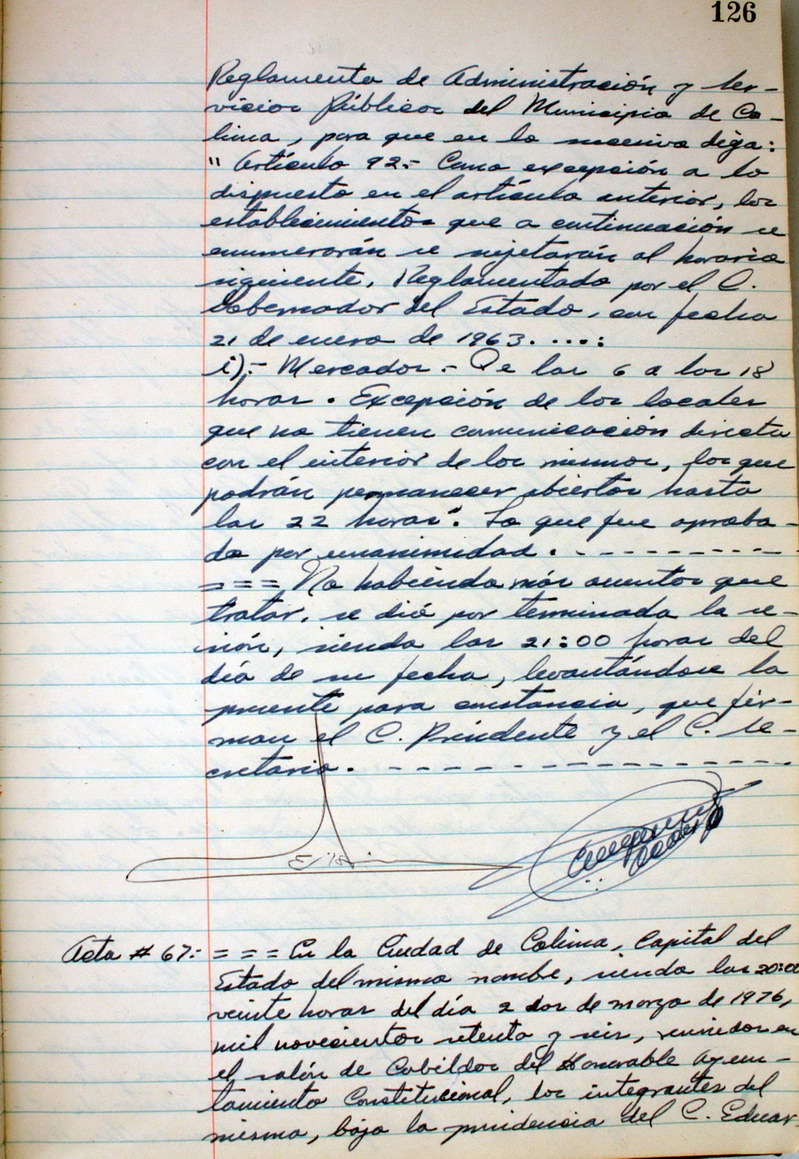 126
Reglamento de Administración y Ser-
vicios Públicos del Municipio de Co-
lima, para que en lo sucesivo diga:
" Artículo 92.- Como excepción a lo
dispuesto en el artículo anterior, los
establecimientos que a continuación se
enumerarán se sujetarán al horario
siguiente, Reglamentado por el C.
Gobernador del Estado, con fecha
21 de enero de 1963. ....:
i).- Mercados.- De las 6 a las 18
horas. Excepción de los locales
que no tienen comunicación directa
con el interior de los mismos, los que
podrán permanecer abiertos hasta
las 22 horas". Lo que fue aproba-
do por unanimidad. - - - - - - - - -
= = = No habiendo más asuntos que
tratar, se dió por terminada la se-
sión, siendo las 21:00 horas del
día de su fecha, levantándose la
presente para constancia, que fir-
man el C. Presidente y el C. Se-
cretario. - - - - - - - - - - - - - - -
Acta # 67:- = = = En la Ciudad de Colima, Capital del
Estado del mismo nombre, siendo las 20:00
veinte horas del día 2 dos de marzo de 1976,
mil novecientos setenta y seis, reunidos en
el salón de Cabildos del Honorable Ayun-
tamiento Constitucional, los integrantes del
mismo, bajo la presidencia del C. Eduar-